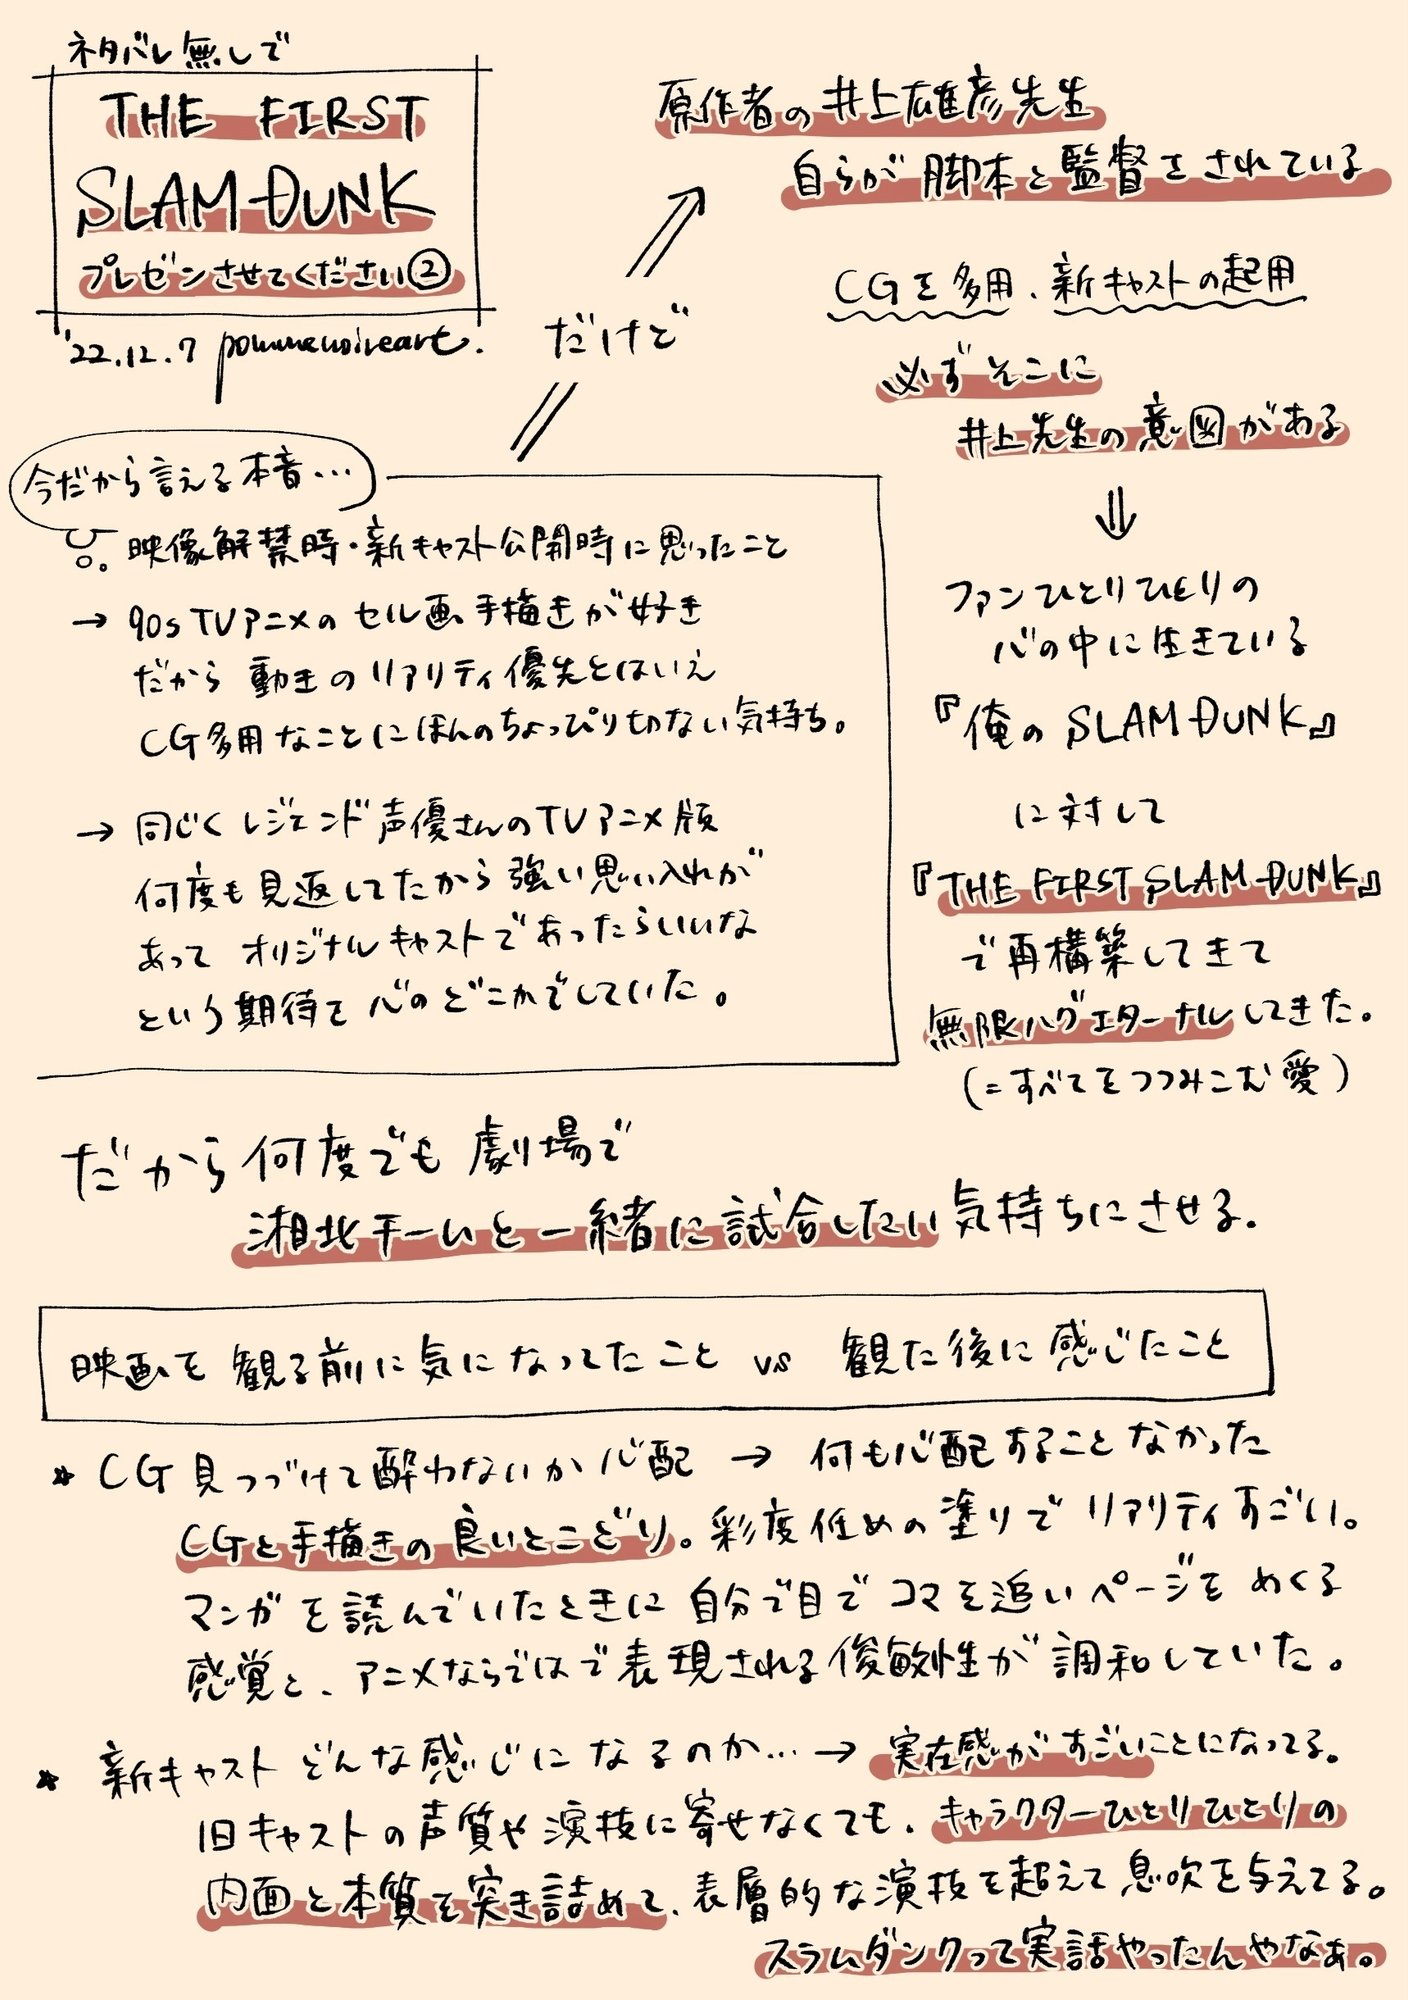 ネタバレ無しで
THE FIRST
SLAM DUNK
プレゼンさせてください②
'22.12.7 pommenoireart.
今だから言える本音…
映像解禁時・新キャスト公開時に思ったこと
→ 90s TVアニメのセル画、手描きが好き
だから動きのリアリティ優先とはいえ
CG多用なことにほんのちょっぴり切ない気持ち。
→ 同じくレジェンド声優さんのTVアニメ版
何度も見返してたから強い思い入れが
あって オリジナルキャストであったらいいな
という期待を心のどこかでしていた。
だけど
原作者の井上雄彦先生
自らが脚本と監督をされている
CGを多用、新キャストの起用
必ずそこに
井上先生の意図がある
⇓
ファンひとりひとりの
心の中に生きている
『俺の SLAM DUNK』
に対して
『THE FIRST SLAM DUNK』
で再構築してきて
無限ハグエターナルしてきた。
(=すべてをつつみこむ愛)
だから何度でも劇場で
湘北チームと一緒に試合したい気持ちにさせる。
映画を観る前に気になってたこと vs 観た後に感じたこと
* CG見つづけて酔わないか心配 → 何も心配することなかった
CGと手描きの良いとこどり。彩度低めの塗りでリアリティすごい。
マンガを読んでいたときに自分で目でコマを追いページをめくる
感覚と、アニメならではで表現される俊敏性が調和していた。
* 新キャストどんな感じになるのか…→ 実在感がすごいことになってる。
旧キャストの声質や演技に寄せなくても、キャラクターひとりひとりの
内面と本質を突き詰めて、表層的な演技を超えて息吹を与えてる。
スラムダンクって実話やったんやなぁ。